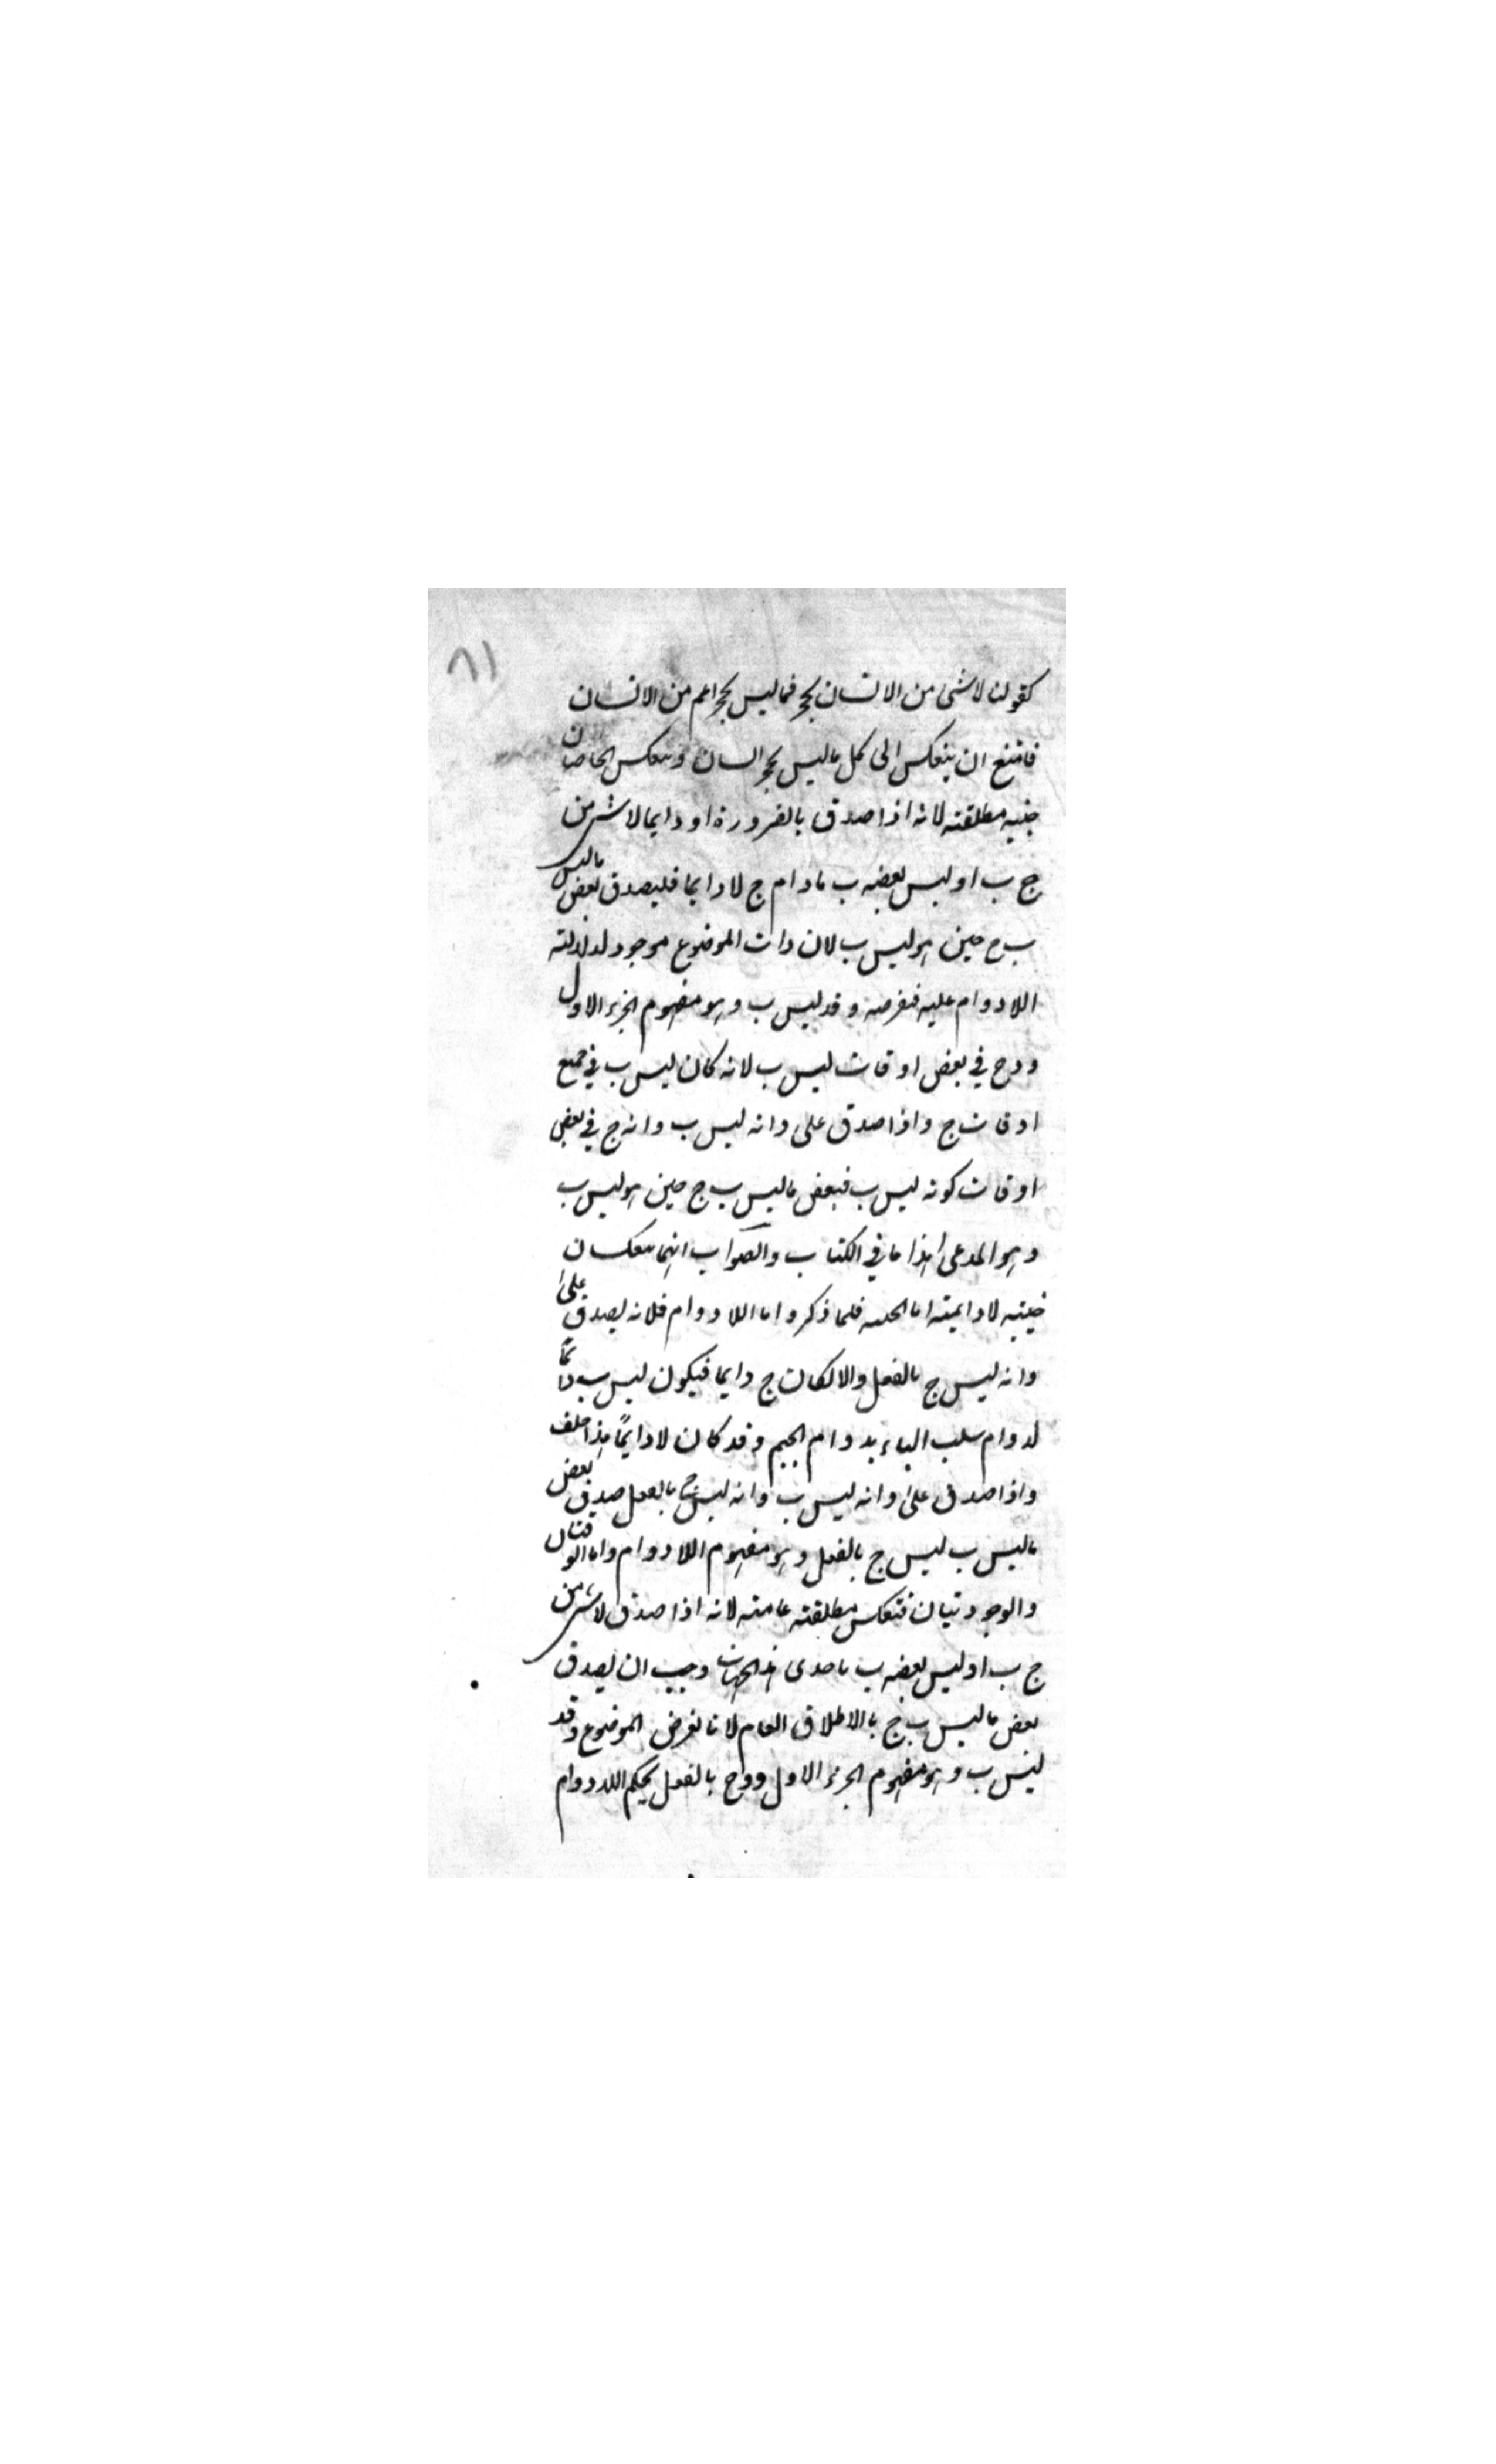 ٨١
كقولنا لا شئ من الانسان بحجر فما ليس بحجر اعم من الانسان
فامتنع ان ينعكس الى كل ما ليس بحجر انسان وينعكس الخاصتان
حينيه مطلقته لانه اذا صدق بالضرورة او دايما لا شئ من
ج ب او ليس بعضه ب مادام ج لا دايما فليصدق بعض ما ليس
ب ج حين هو ليس ب لان ذات الموضوع موجود لدلالته
اللادوام عليه فنفرضه د فد ليس ب وهو مفهوم الجزء الاول
ود ج في بعض اوقات ليس ب لانه كان ليس ب في جميع
اوقات ج واذا صدق على د انه ليس ب وانه ج في بعض
اوقات كونه ليس ب فبعض ما ليس ب ج حين هو ليس ب
وهو المدعى هذا ما في الكتاب والصواب انهما ينعكسان
حينيه لا دايمته اما الحينيه فلما ذكر واما اللادوام فلانه يصدق على
د انه ليس ج بالفعل والا لكان ج دايما فيكون ليس ب دائما
لدوام سلب الباء بدوام الجيم وقد كان لا دايمًا هذا خلف
واذا صدق على د انه ليس ب وانه ليس ج بالفعل صدق بعض
ما ليس ب ليس ج بالفعل وهو مفهوم اللادوام واما الوقتيتان
والوجوديتان فتنعكس مطلقته عامته لانه اذا صدق لا شئ من
ج ب او ليس بعضه ب باحدى هذه الجهات وجب ان يصدق
بعض ما ليس ب ج بالاطلاق العام لانا نفرض الموضوع د فد
ليس ب وهو مفهوم الجزء الاول ود ج بالفعل بحكم اللادوام